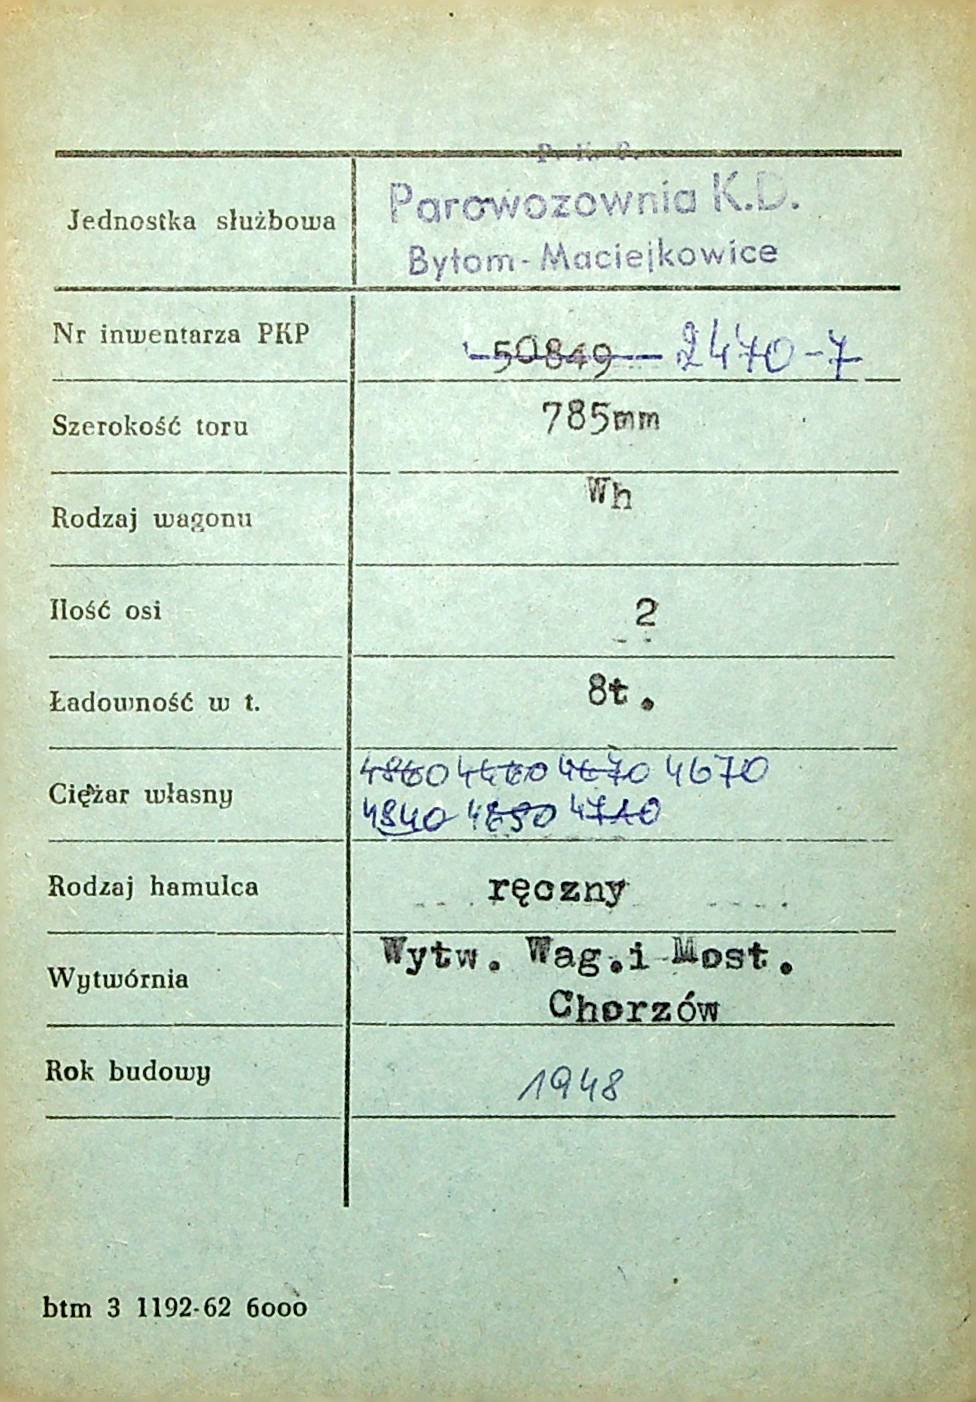 P. K. P.
Jednostka służbowa Parowozownia K.D.
Bytom-Maciejkowice
Nr inwentarza PKP 50849 2470-7
Szerokość toru 785mm
Rodzaj wagonu Wh
Ilość osi 2
Ładowność w t. 8t.
Ciężar własny 4860 4460 4670 4670
4840 4850 4710
Rodzaj hamulca ręczny
Wytwórnia Wytw. Wag.i Most.
Chorzów
Rok budowy 1948
btm 3 1192-62 6000